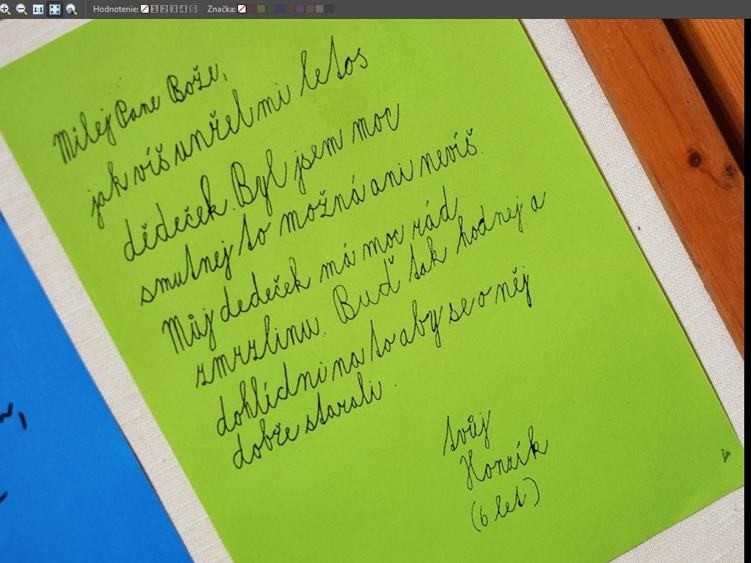 Hodnotenie: 1 2 3 4 5 Značka:
Milej Pane Bože,
jak víš umřel mi letos
dědeček. Byl jsem moc
smutnej to možná ani nevíš.
Můj dedeček má moc rád
zmrzlinu. Buď tak hodnej a
dohlídni na to aby se o něj
dobře starali.
tvůj
Honzík
(6 let)